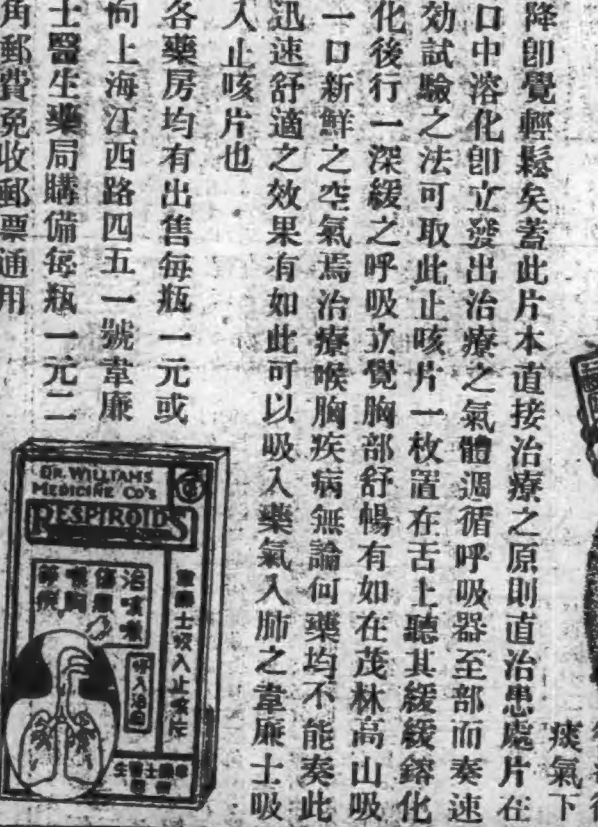 痰氣下
降卽覺輕鬆矣蓋此片本直接治療之原則直治患處片在
口中溶化卽立發出治療之氣體週循呼吸器至部而奏速
効試驗之法可取此止咳片一枚置在舌上聽其緩緩鎔化
化後行一深緩之呼吸立覺胸部舒暢有如在茂林高山吸
一口新鮮之空氣焉治療喉胸疾病無論何藥均不能奏此
迅速舒適之效果有如此可以吸入藥氣入肺之韋廉士吸
入止咳片也
各藥房均有出售每瓶一元或
向上海江西路四五一號韋廉
士醫生藥局購備每瓶一元二
角郵費免收郵票通用
DR. WILLIAMS
MEDICINE CO'S
RESPIROIDS
韋廉士吸入止咳片
治咳嗽
傷風
喉胸
吸入治